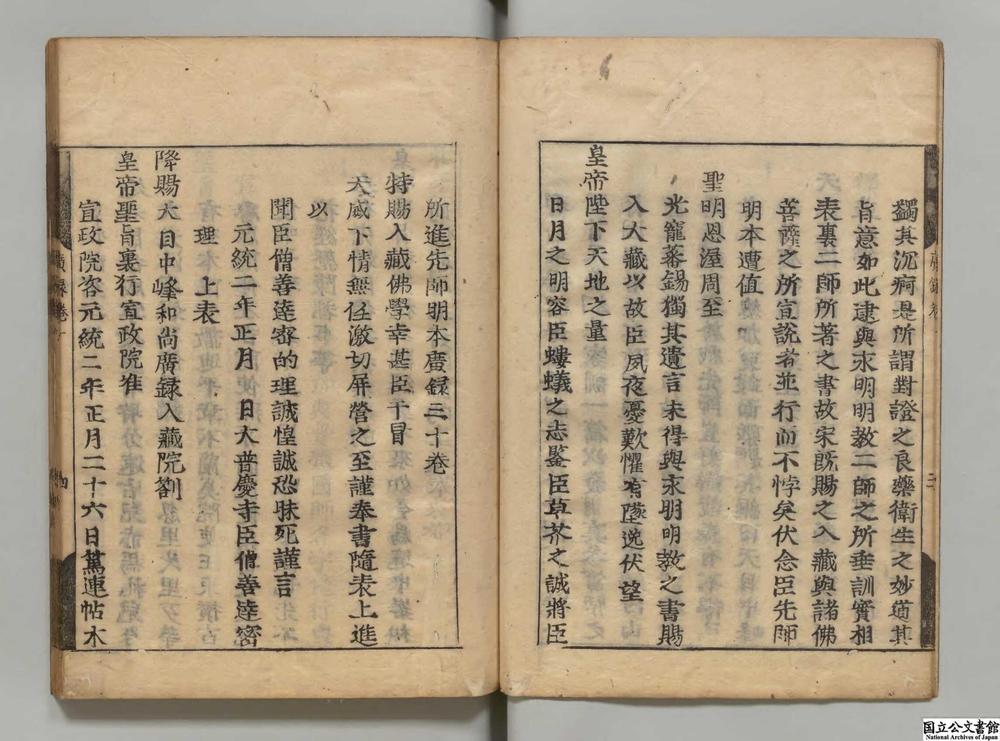 蠲其沉痾是所謂對證之良藥衛生之妙道其
旨意如此建與永明明教二師之所垂訓實相
表裏二師所著之書故宋既賜之入藏與諸佛
菩薩之所宣說者並行而不悖矣伏念臣先師
明本遭值
聖明恩渥周至
光寵蕃錫獨其遺言未得與永明明教之書賜
入大藏以故臣夙夜憂歎懼有墜逸伏望
皇帝陛下天地之量
日月之明容臣螻蟻之志鑒臣草芥之誠將臣
廣錄卷一
三
所進先師明本廣録三十卷
特賜入藏佛學幸甚臣干冒
天威下情無任激切屏營之至謹奉書隨表上進
以
聞臣僧善達密的理誠惶誠恐昧死謹言
元統二年正月　日大普慶寺臣僧善達密
的理　上表
降賜天目中峰和尚廣録入藏院劄
皇帝聖旨裏行宣政院准
宣政院咨元統二年正月二十六日篤連帖木
廣錄卷一
四
国立公文書館
National Archives of Japan